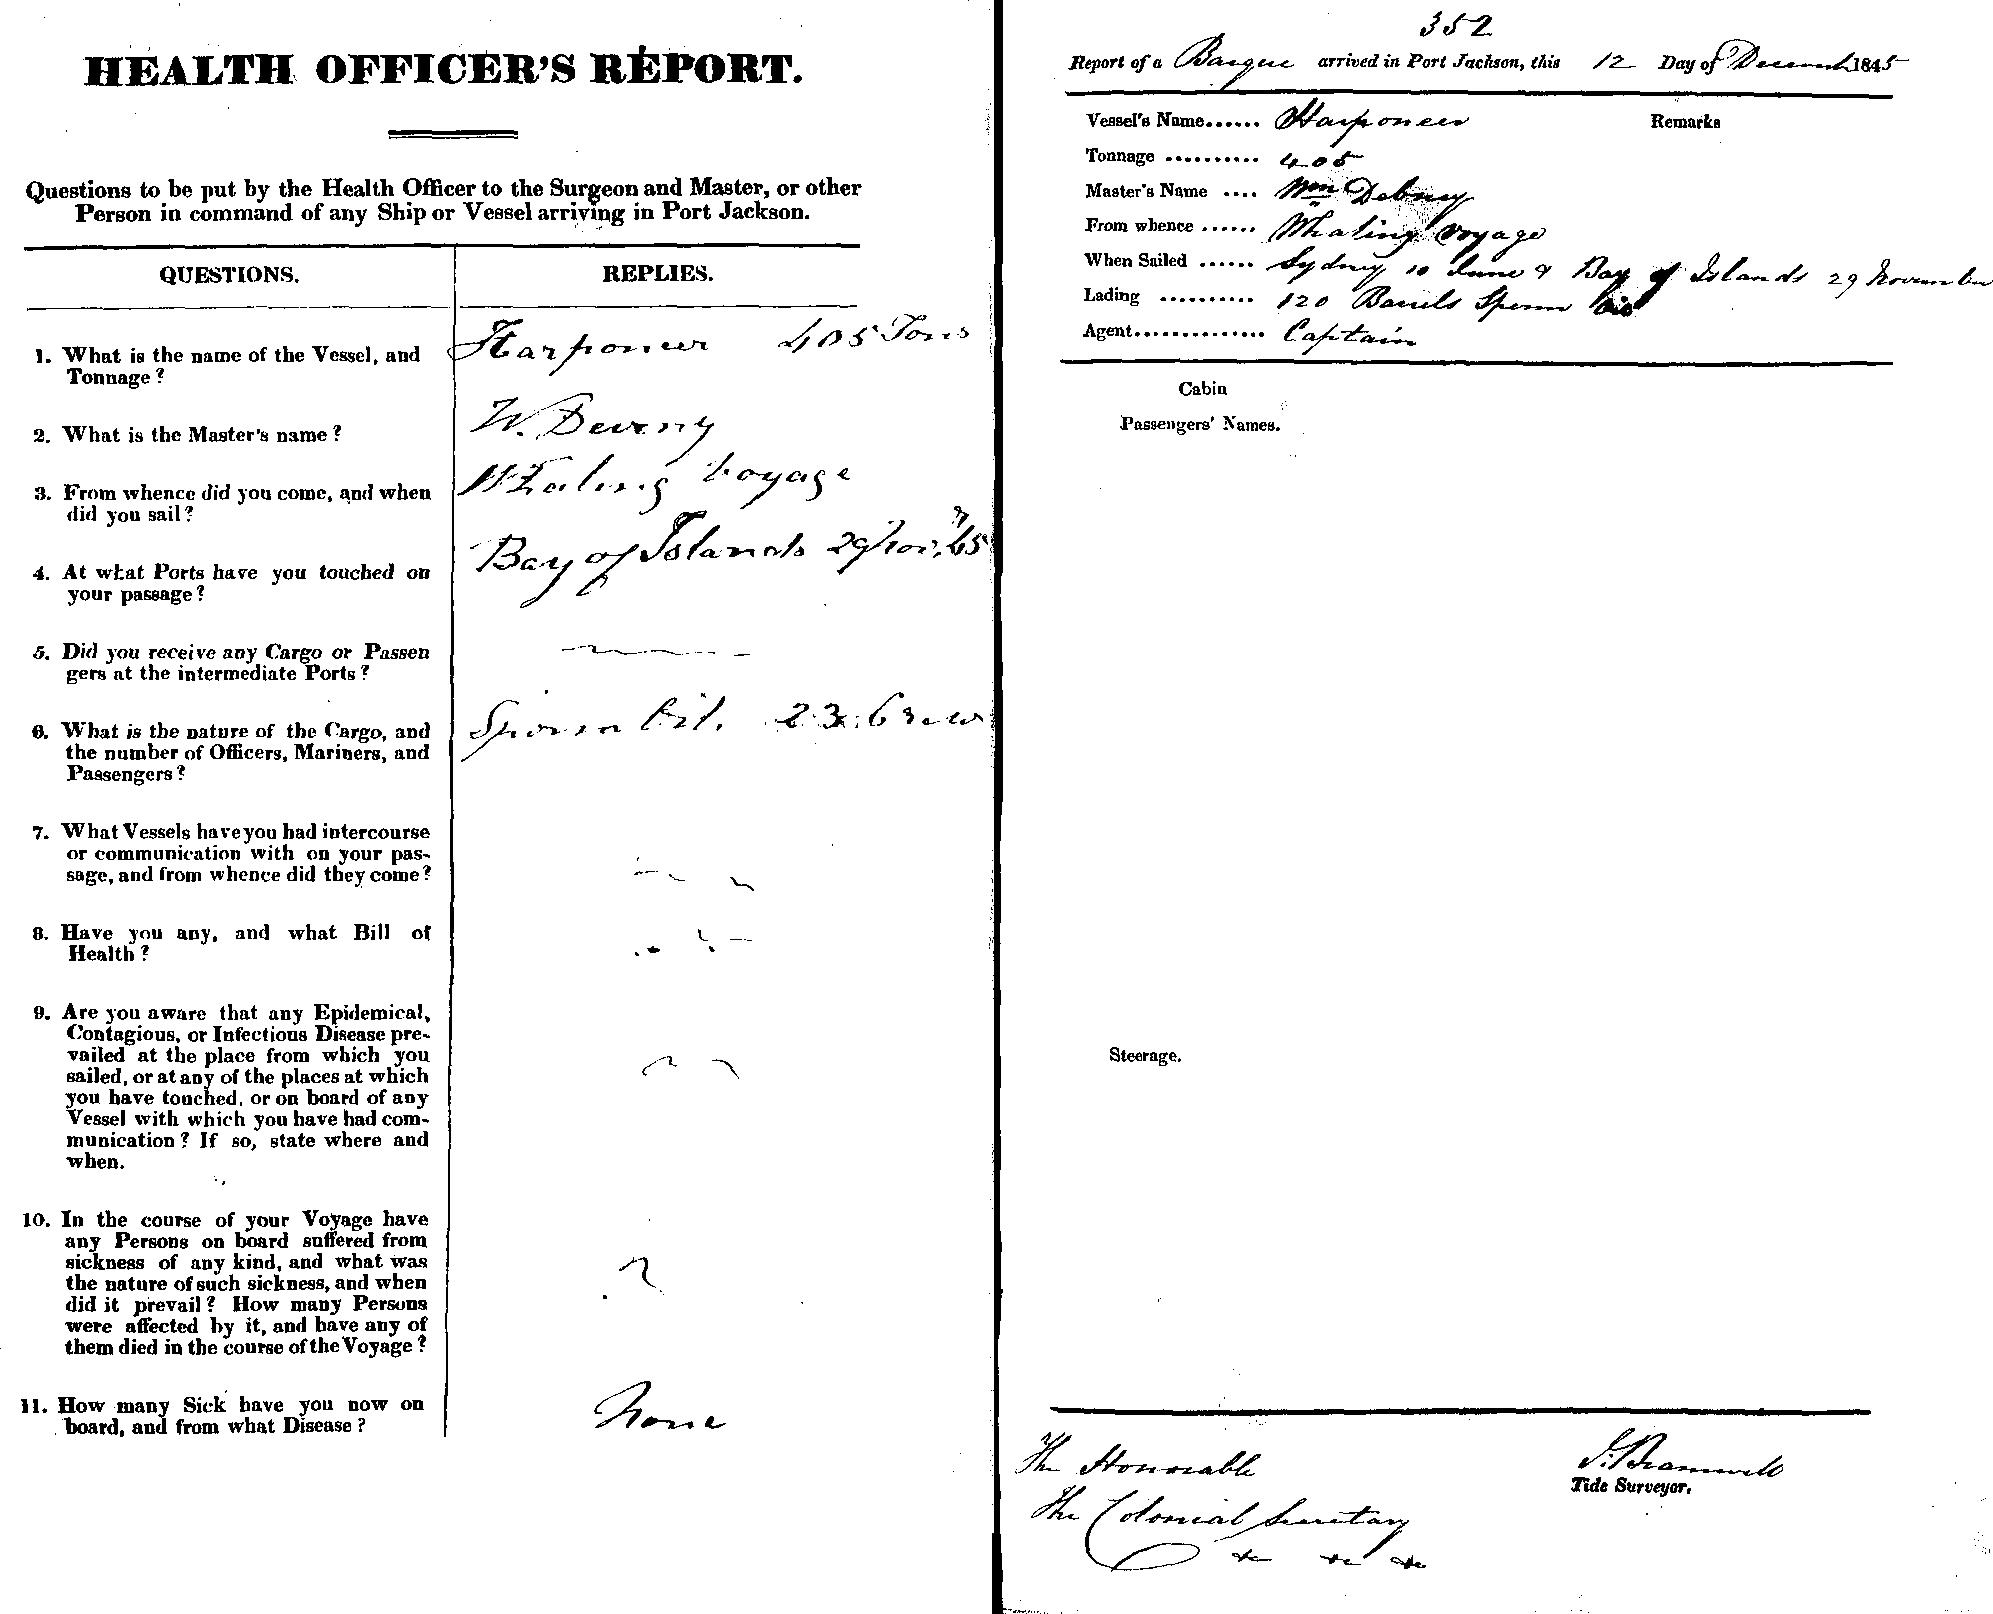 HEALTH OFFICER'S REPORT.
Questions to be put by the Health Officer to the Surgeon and Master, or other
Person in command of any Ship or Vessel arriving in Port Jackson.
QUESTIONS. REPLIES.
1. What is the name of the Vessel, and
Tonnage?
Harponeer 405 Tons
2. What is the Master's name?
W. Devrny
3. From whence did you come, and when
did you sail?
Whaling Voyage
4. At what Ports have you touched on
your passage?
Bay of Islands 29 Nov. 45
5. Did you receive any Cargo or Passen
gers at the intermediate Ports?
6. What is the nature of the Cargo, and
the number of Officers, Mariners, and
Passengers?
Sperm Oil. 23. Crew
7. What Vessels have you had intercourse
or communication with on your pas-
sage, and from whence did they come?
8. Have you any, and what Bill of
Health?
9. Are you aware that any Epidemical,
Contagious, or Infectious Disease pre-
vailed at the place from which you
sailed, or at any of the places at which
you have touched, or on board of any
Vessel with which you have had com-
munication? If so, state where and
when.
10. In the course of your Voyage have
any Persons on board suffered from
sickness of any kind, and what was
the nature of such sickness, and when
did it prevail? How many Persons
were affected by it, and have any of
them died in the course of the Voyage?
11. How many Sick have you now on
board, and from what Disease?
None
352
Report of a Barque arrived in Port Jackson, this 12 Day of December 1845
Vessel's Name...... Harponeer Remarks
Tonnage .......... 405
Master's Name .... Wm Debney
From whence ...... Whaling voyage
When Sailed ...... Sydney 10 June & Bay of Islands 29 November
Lading .......... 120 Barrels Sperm Oil
Agent.............. Captain
Cabin
Passengers' Names.
Steerage.
The Honorable
The Colonial Secretary
&c &c &c
S. Bramwell
Tide Surveyor.